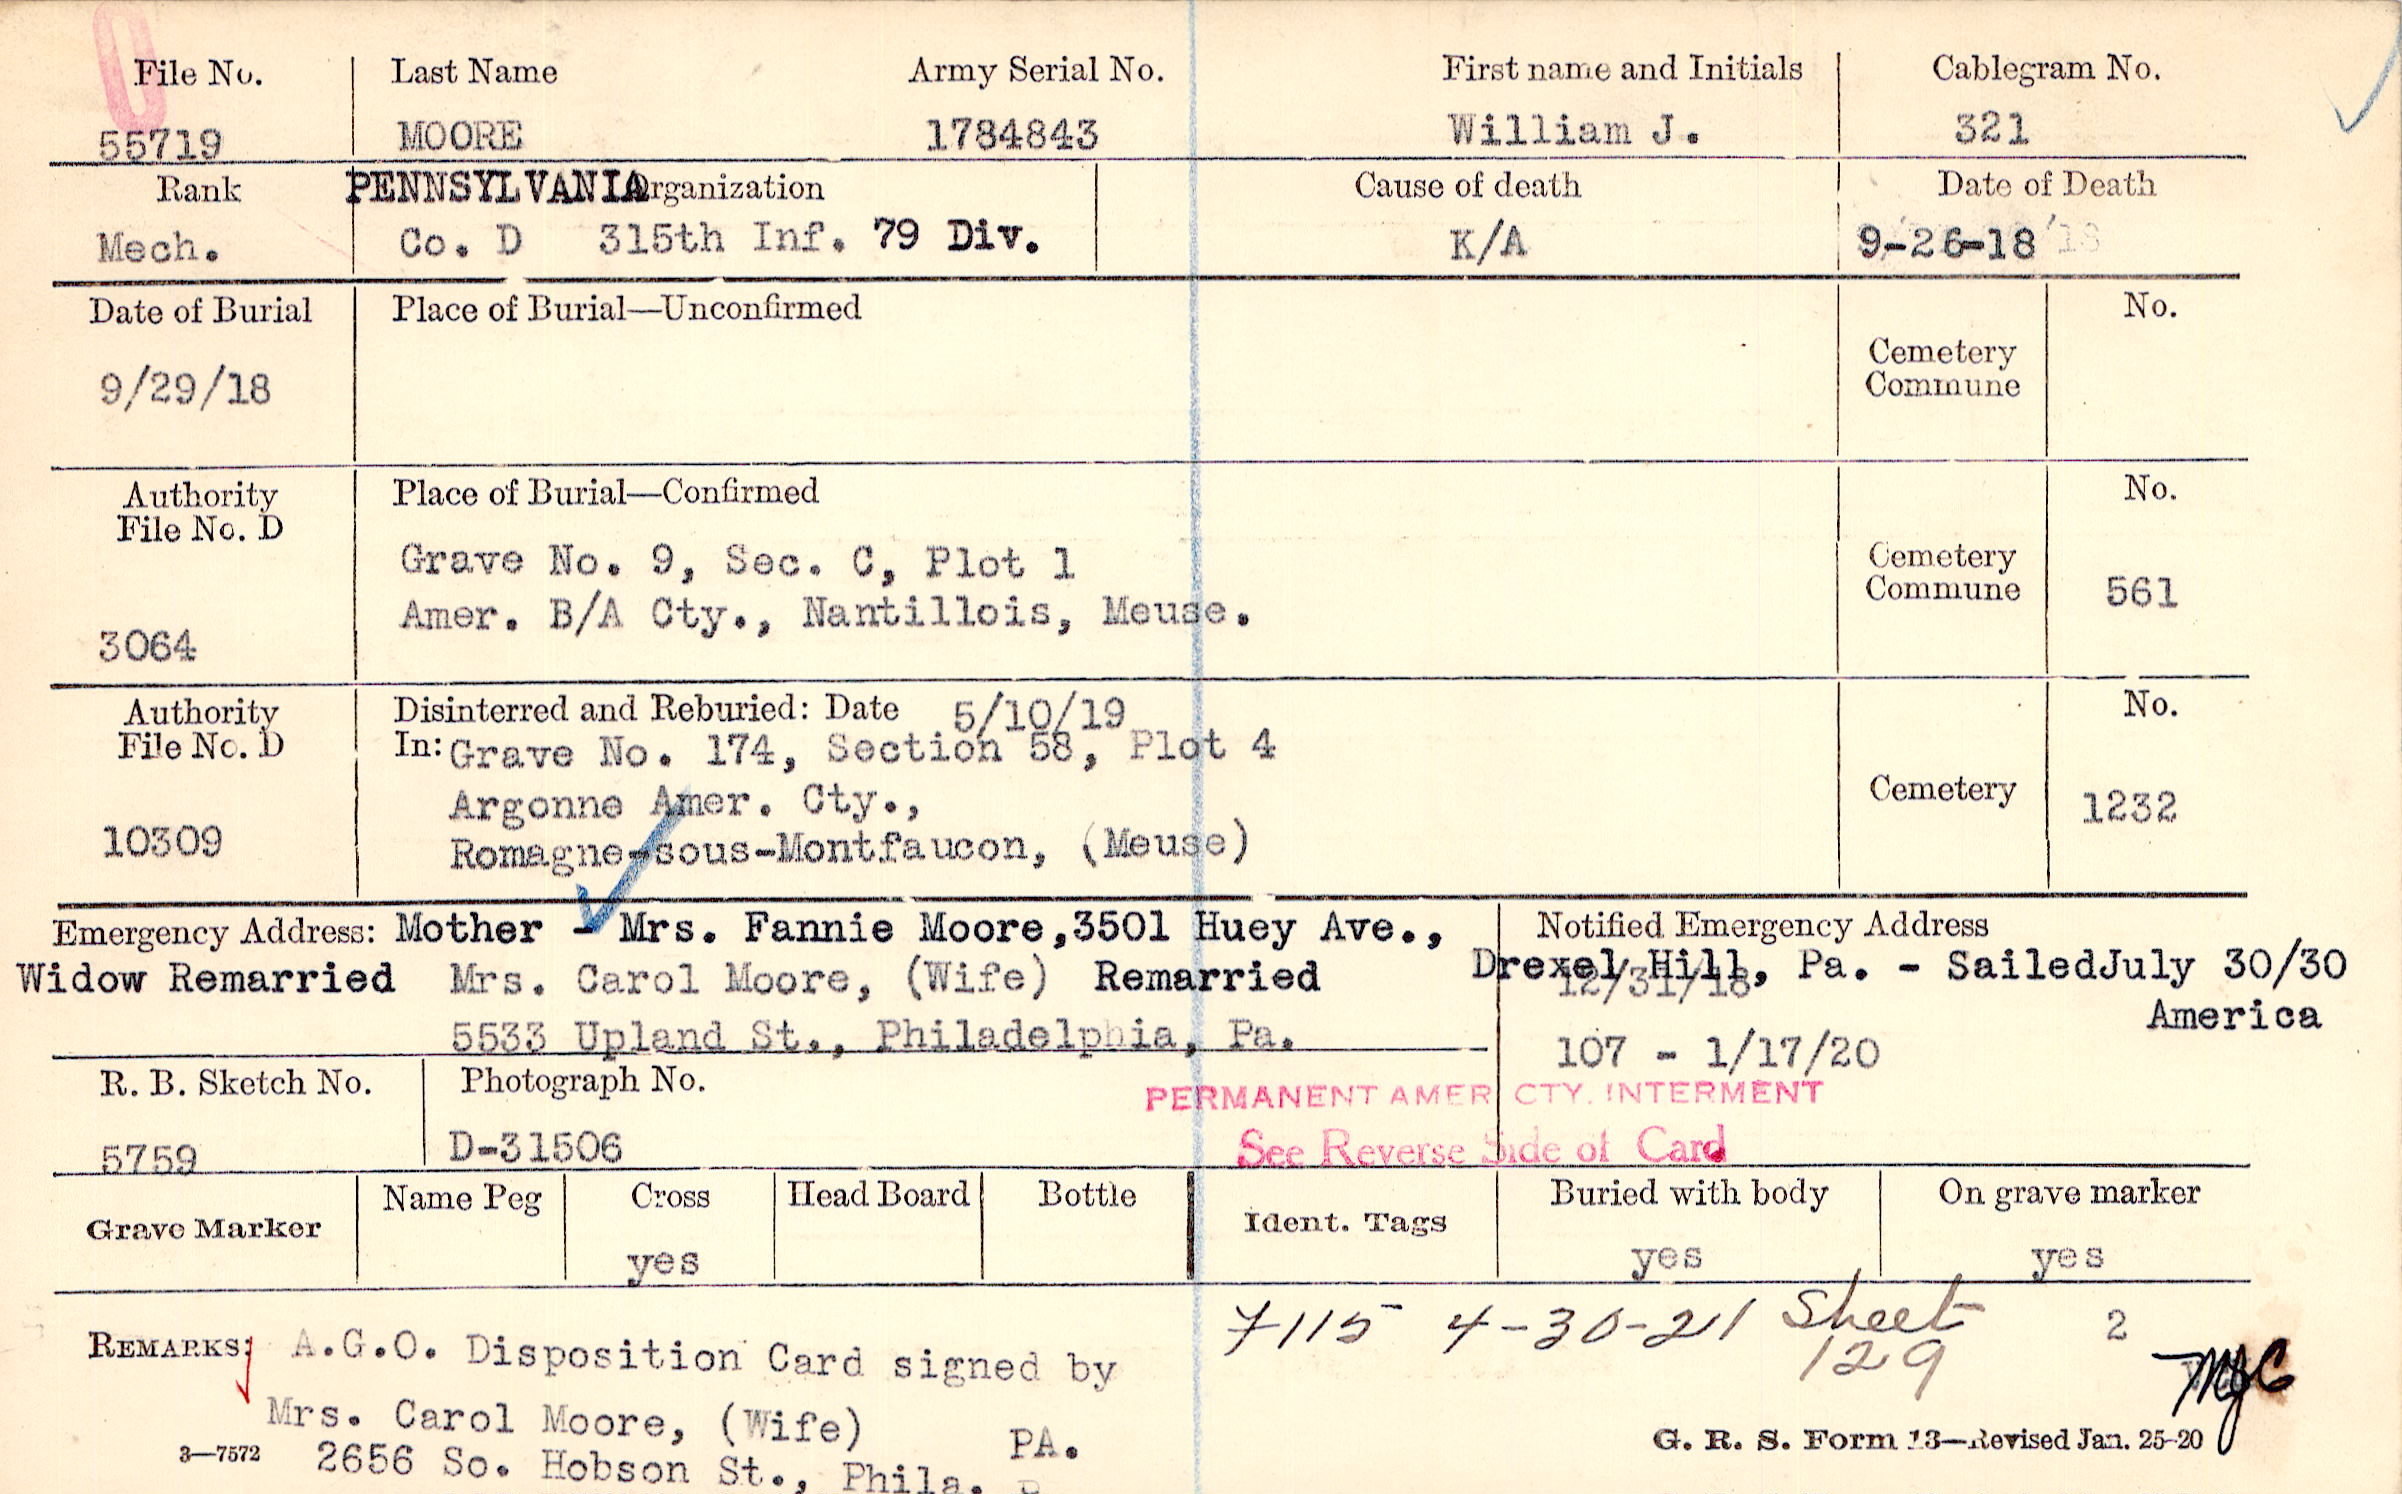 File No. Last Name Army Serial No. First name and Initials Cablegram No.
55719 MOORE 1784843 William J. 321
Rank PENNSYLVANIA Organization Cause of death Date of Death
Mech. Co. D 315th Inf. 79 Div. K/A 9-26-18 '18
Date of Burial Place of Burial—Unconfirmed No.
Cemetery
Commune
9/29/18
Authority Place of Burial—Confirmed No.
File No. D
Grave No. 9, Sec. C, Plot 1 Cemetery
Commune 561
Amer. B/A Cty., Nantillois, Meuse.
3064
Authority Disinterred and Reburied: Date 5/10/19 No.
File No. D In: Grave No. 174, Section 58, Plot 4
Argonne Amer. Cty., Cemetery 1232
10309 Romagne-sous-Montfaucon, (Meuse)
Emergency Address: Mother - Mrs. Fannie Moore,3501 Huey Ave., Notified Emergency Address
Drexel Hill, Pa. - SailedJuly 30/30
Widow Remarried Mrs. Carol Moore, (Wife) Remarried 12/31/18
America
5533 Upland St., Philadelphia, Pa. 107 - 1/17/20
R. B. Sketch No. Photograph No. PERMANENT AMER CTY. INTERMENT
5759 D-31506 See Reverse Side of Card
Grave Marker Name Peg Cross Head Board Bottle Ident. Tags Buried with body On grave marker
yes yes yes
7115 4-30-21 Sheet 2
129
REMARKS: A.G.O. Disposition Card signed by
MJC
Mrs. Carol Moore, (Wife) PA.
3—7572 2656 So. Hobson St., Phila. G. R. S. Form 13—Revised Jan. 25-20